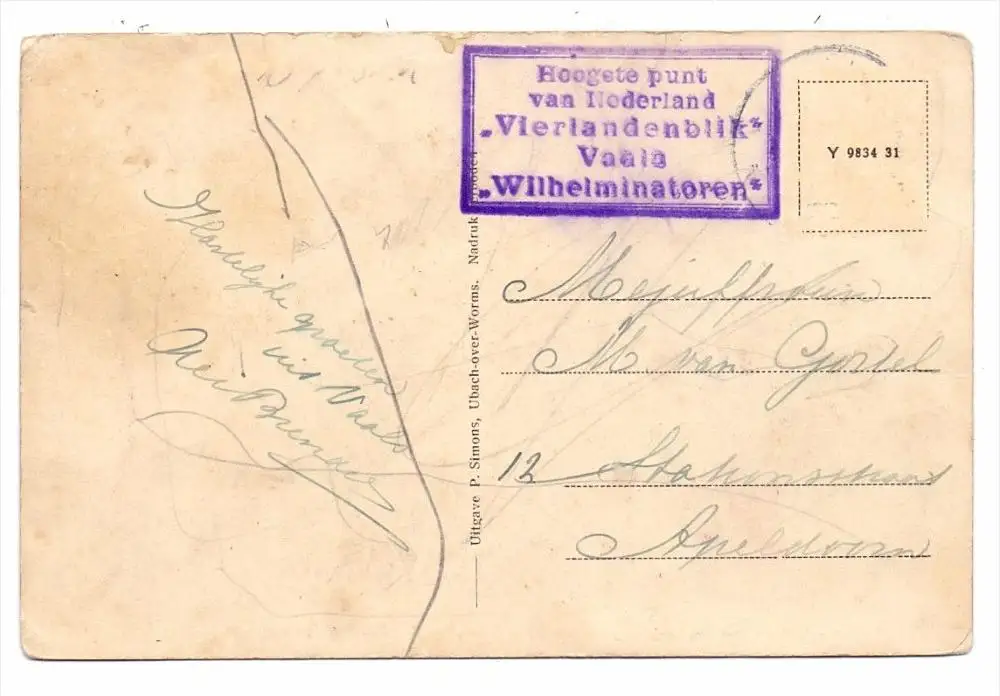 Hoogste punt
van Nederland
„Vierlandenblik"
Vaals
„Wilhelminatoren"
Y 9834 31
Hartelijke groeten
uit Vaals
Uitgave P. Simons, Ubach-over-Worms. Nadruk
Mejuffrouw
M van Gostel
12 Stationsstraat
Apeldoorn